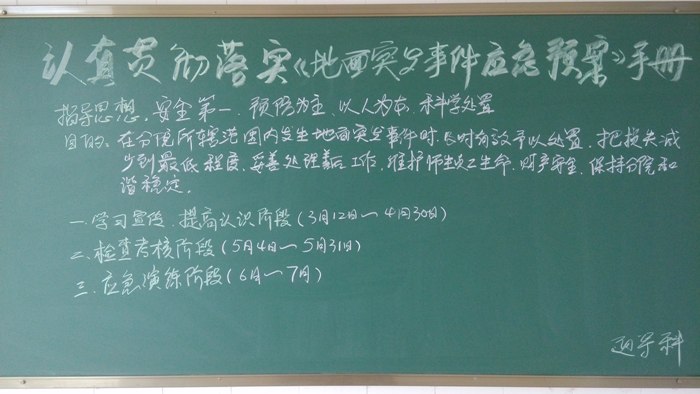 认真贯彻落实《地面突发事件应急预案》手册
指导思想:安全第一、预防为主、以人为本、科学处置
目的:在分院所辖范围内发生地面突发事件时,及时有效予以处置,把损失减
少到最低程度,妥善处理善后工作,维护师生员工生命、财产安全,保持分院和
谐稳定。
一.学习宣传、提高认识阶段(3月12日~4月30日)
二.检查考核阶段(5月4日~5月31日)
三.应急演练阶段(6月~7月)